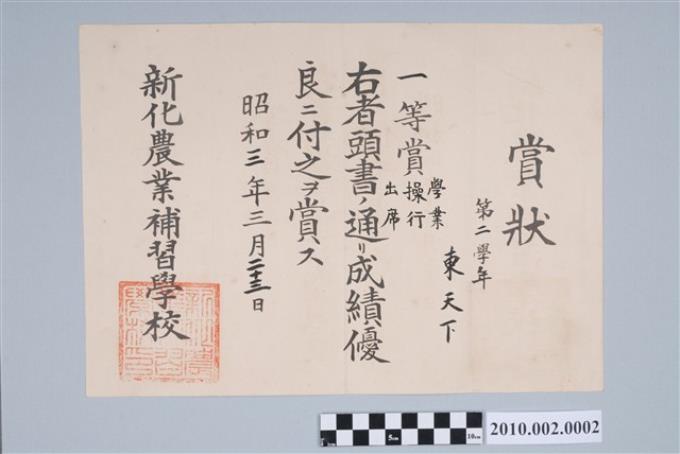 賞狀
第二學年
東天下
一等賞
學業
操行
出席
右者頭書ノ通リ成績優
良ニ付之ヲ賞ス
昭和三年三月二十三日
新化農業補習學校
5cm 10cm
2010.002.0002